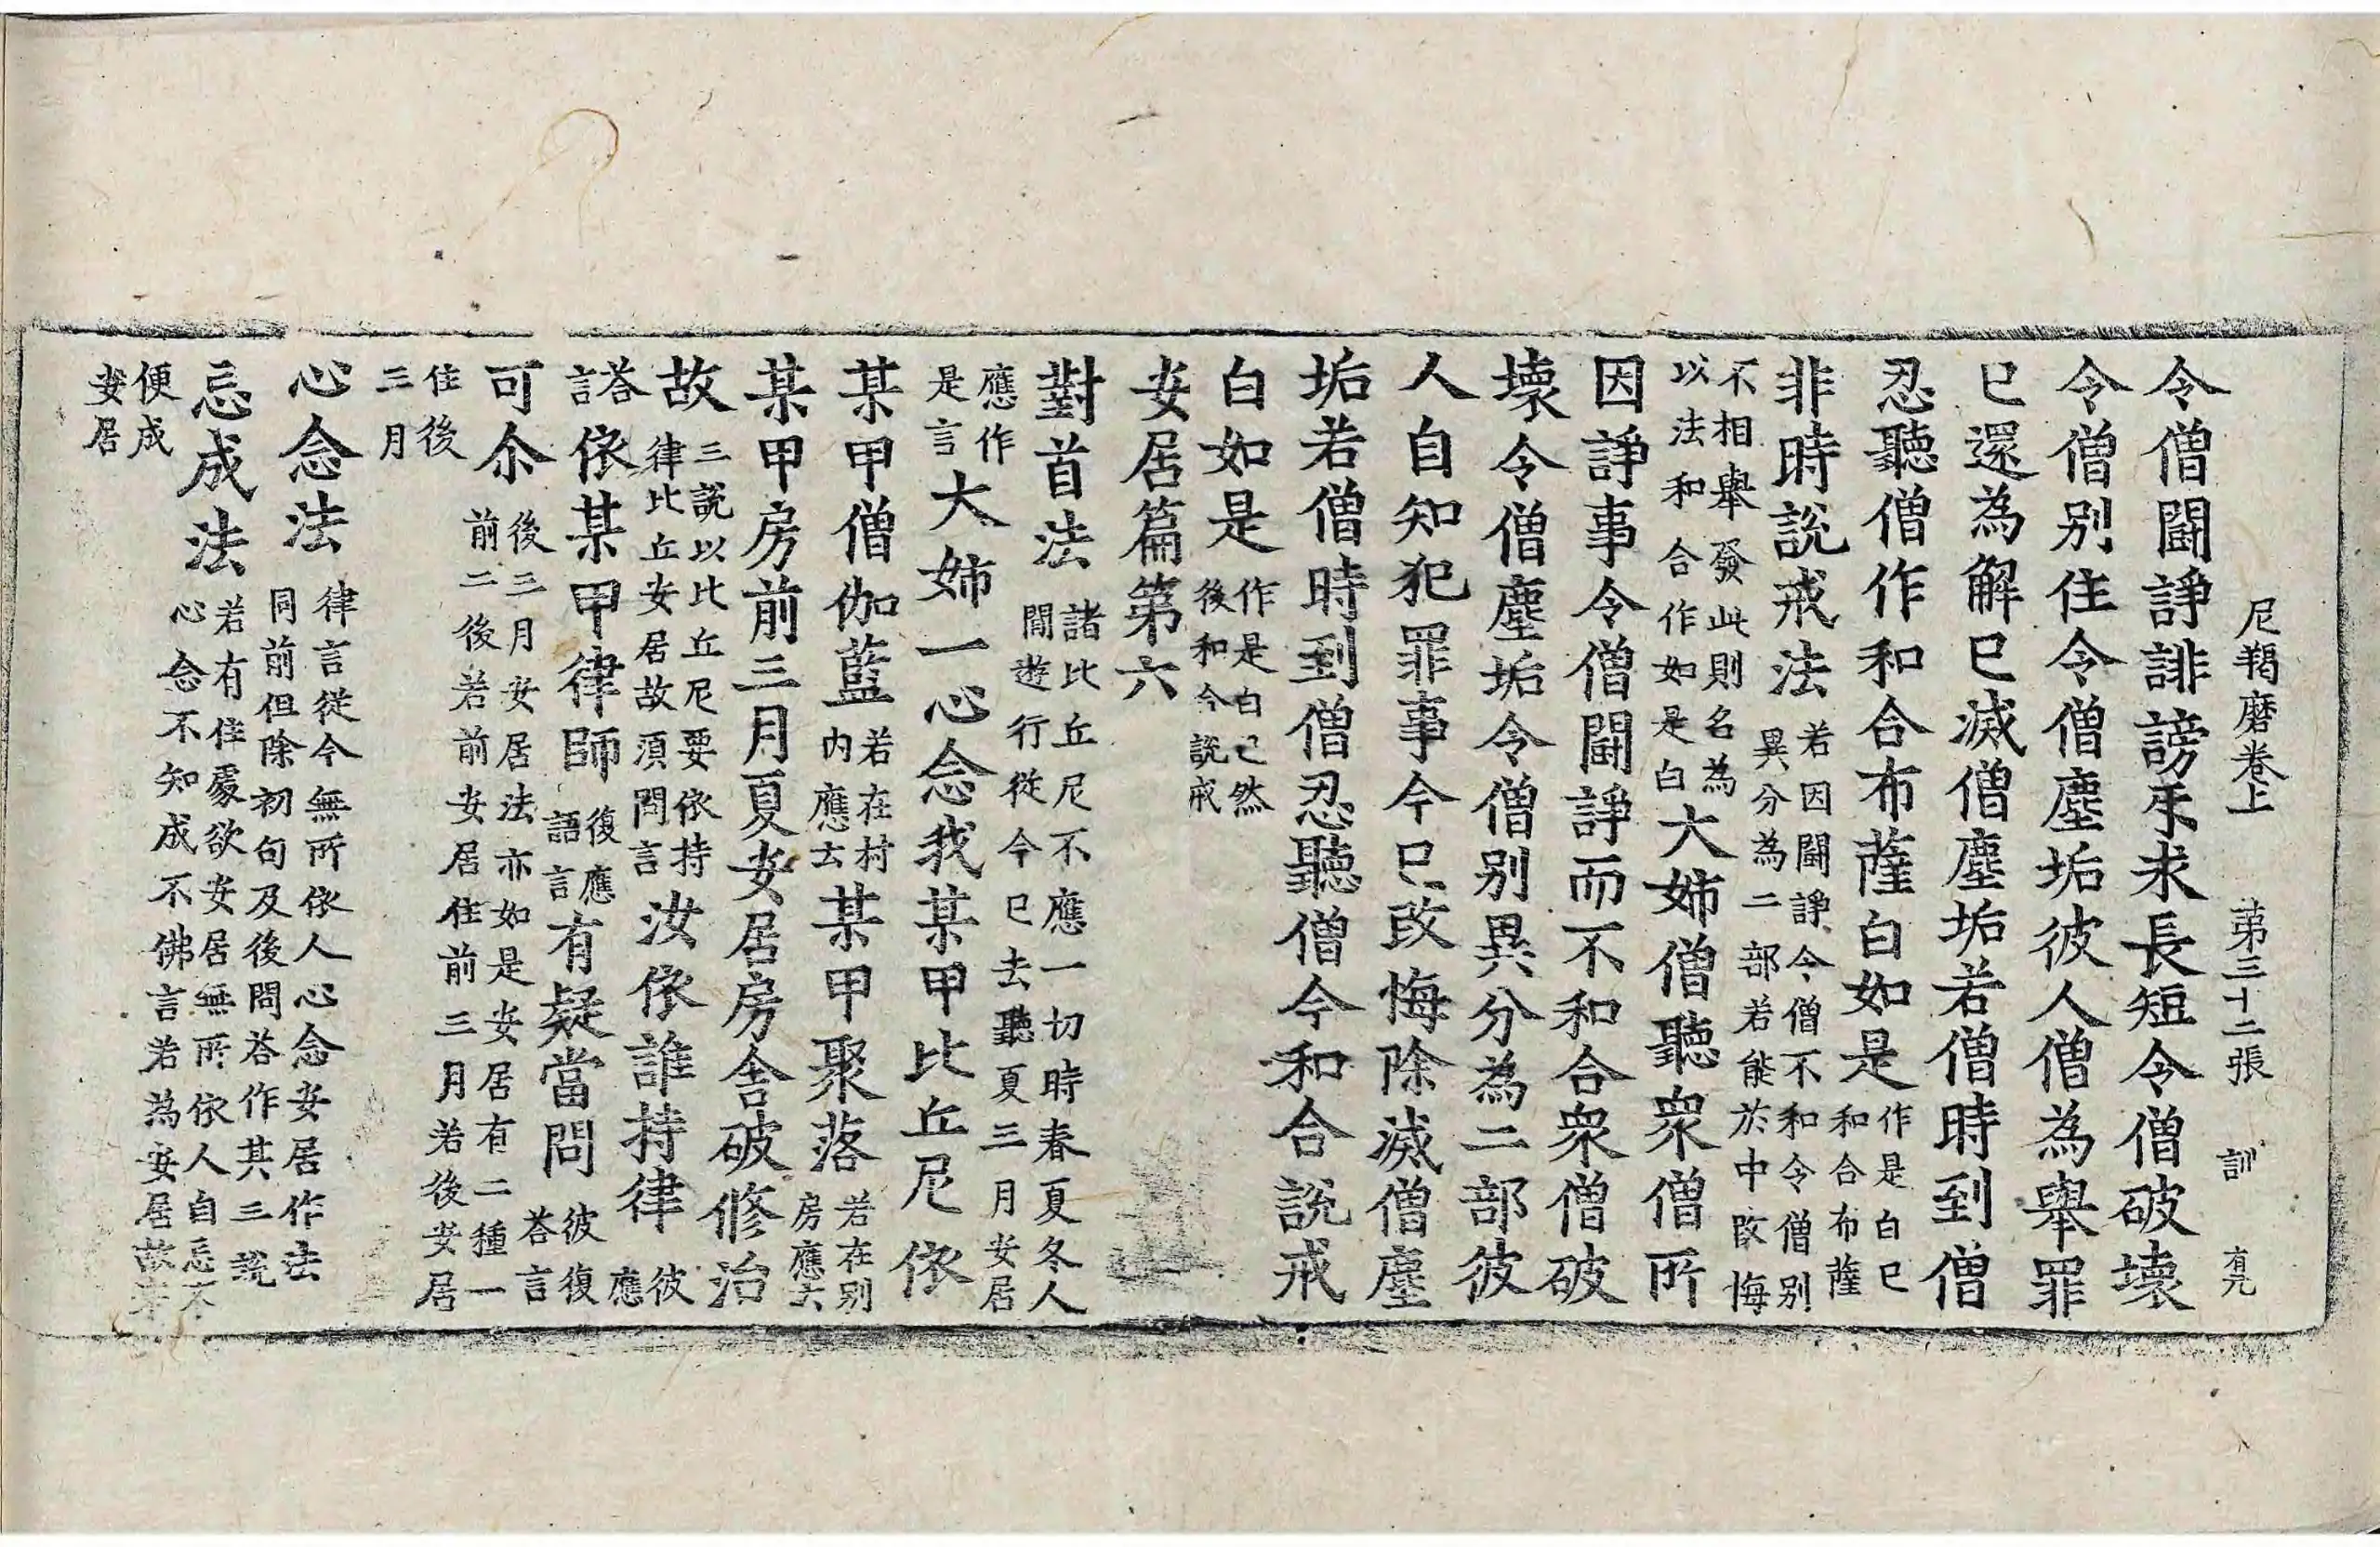 尼羯磨卷上 第三十二張 訓 有元
令僧鬪諍誹謗㸦求長短令僧破壞
令僧别住令僧塵垢彼人僧為舉罪
已還為解已滅僧塵垢若僧時到僧
忍聽僧作和合布薩白如是 作是白已
和合布薩
非時說戒法 若因鬪諍令僧不和令僧别
異分為二部若能於中改悔
不相舉發此則名為
以法和合作如是白 大姉僧聽眾僧所
因諍事令僧鬪諍而不和合眾僧破
壞令僧塵垢令僧别異分為二部彼
人自知犯罪事今已改悔除滅僧塵
垢若僧時到僧忍聽僧今和合說戒
白如是 作是白已然
後和今說戒
安居篇第六
對首法 諸比丘尼不應一切時春夏冬人
間遊行從今已去聽夏三月安居
應作
是言 大姉一心念我某甲比丘尼依
某甲僧伽藍 若在村
内應去 某甲聚落 若在别
房應云
某甲房前三月夏安居房舍破修治
故 三說以比丘尼要依持
律比丘安居故須問言 汝依誰持律 彼
應
荅
言 依某甲律師 復應
語言 有疑當問 彼復
荅言
可尒 後三月安居法亦如是安居有二種一
前二後若前安居住前三月若後安居
住後
三月
心念法 律言從今無所依人心念安居作法
同前但除初句及後問荅作其三說
忘成法 若有住處欲安居無所依人自忘不
心念不知成不佛言若為安居故來
便成
安居